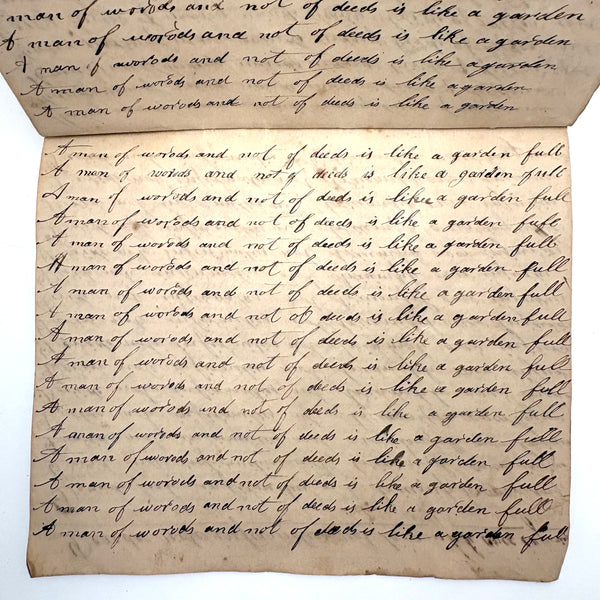 man of words and not of deeds is like a garden
A man of words and not of deeds is like a garden
A man of words and not of deeds is like a garden
A man of words and not of deeds is like a garden
A man of words and not of deeds is like a garden
A man of words and not of deeds is like a garden full
A man of words and not of deeds is like a garden full
A man of words and not of deeds is like a garden full
A man of words and not of deeds is like a garden full
A man of words and not of deeds is like a garden full
A man of words and not of deeds is like a garden full
A man of words and not of deeds is like a garden full
A man of words and not of deeds is like a garden full
A man of words and not of deeds is like a garden full
A man of words and not of deeds is like a garden full
A man of words and not of deeds is like a garden full
A man of words and not of deeds is like a garden full
A man of words and not of deeds is like a garden full
A man of words and not of deeds is like a garden full
A man of words and not of deeds is like a garden full
A man of words and not of deeds is like a garden full
A man of words and not of deeds is like a garden full